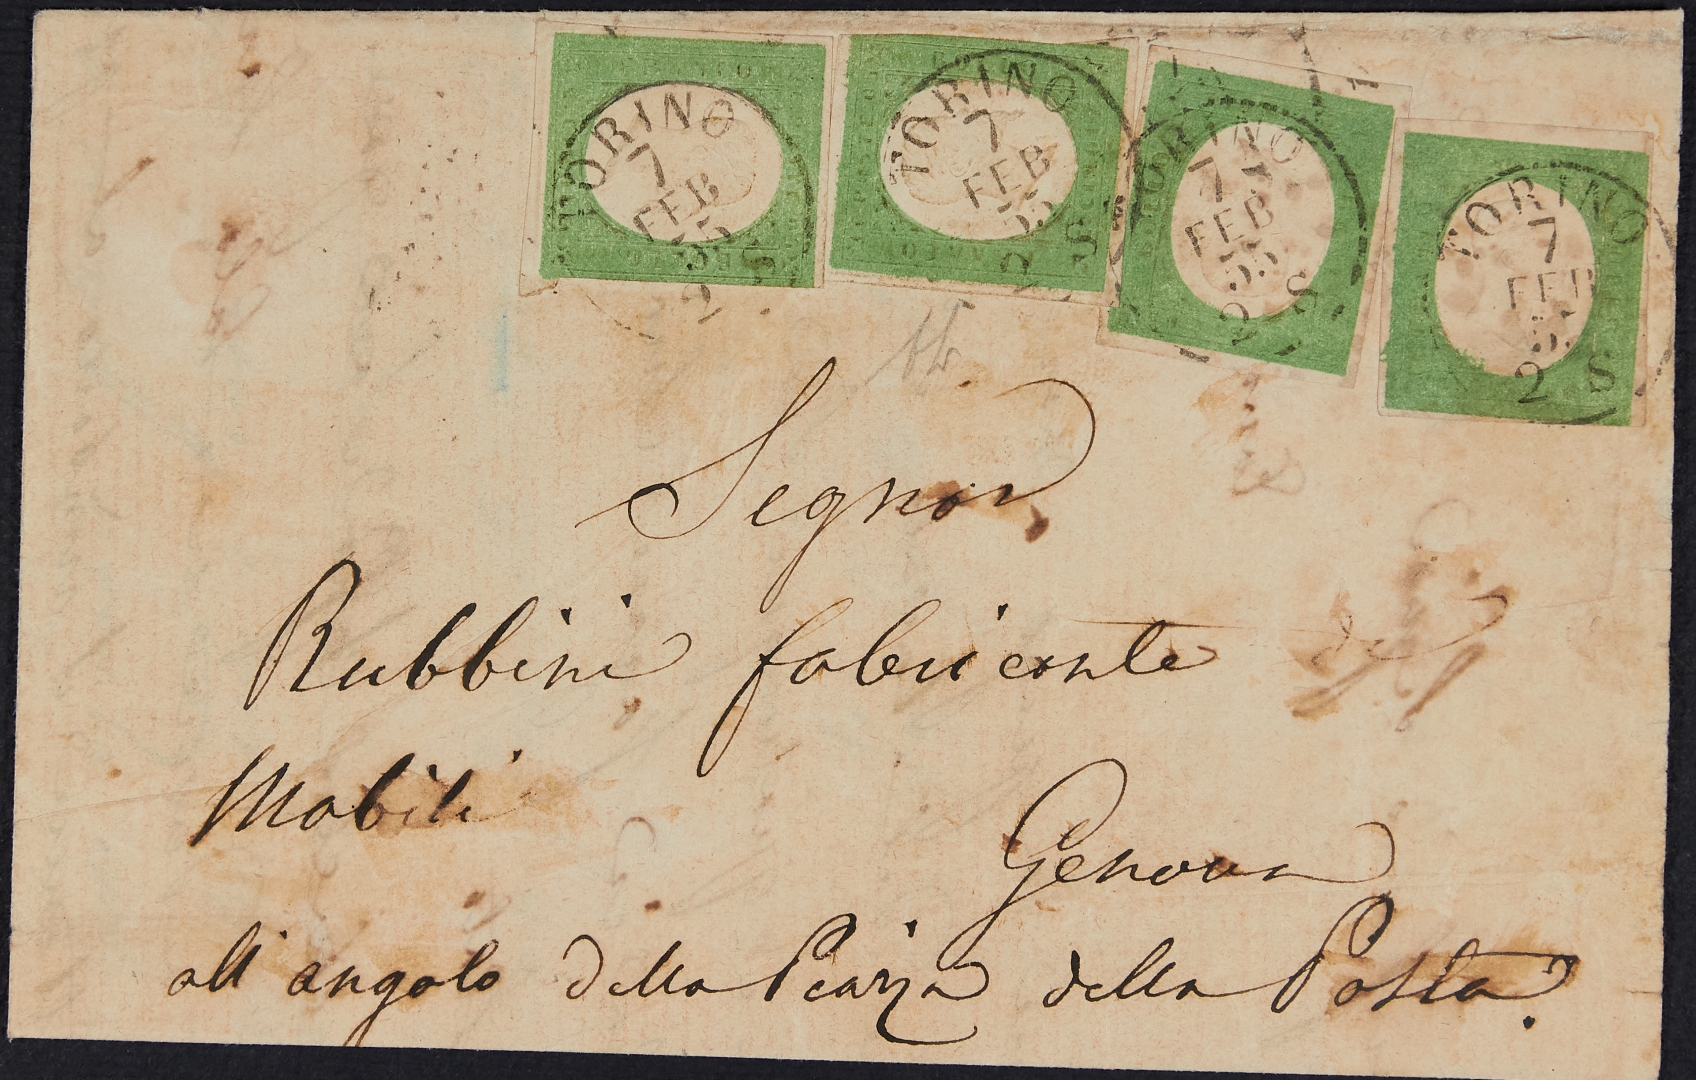 TORINO
7
FEB
55
2 S
TORINO
7
FEB
55
2 S
TORINO
7
FEB
55
2 S
TORINO
7
FEB
55
2 S
Segnor
Rubbini fabricante di
Mobili
Genova
all'angolo della Piazza della Posta.